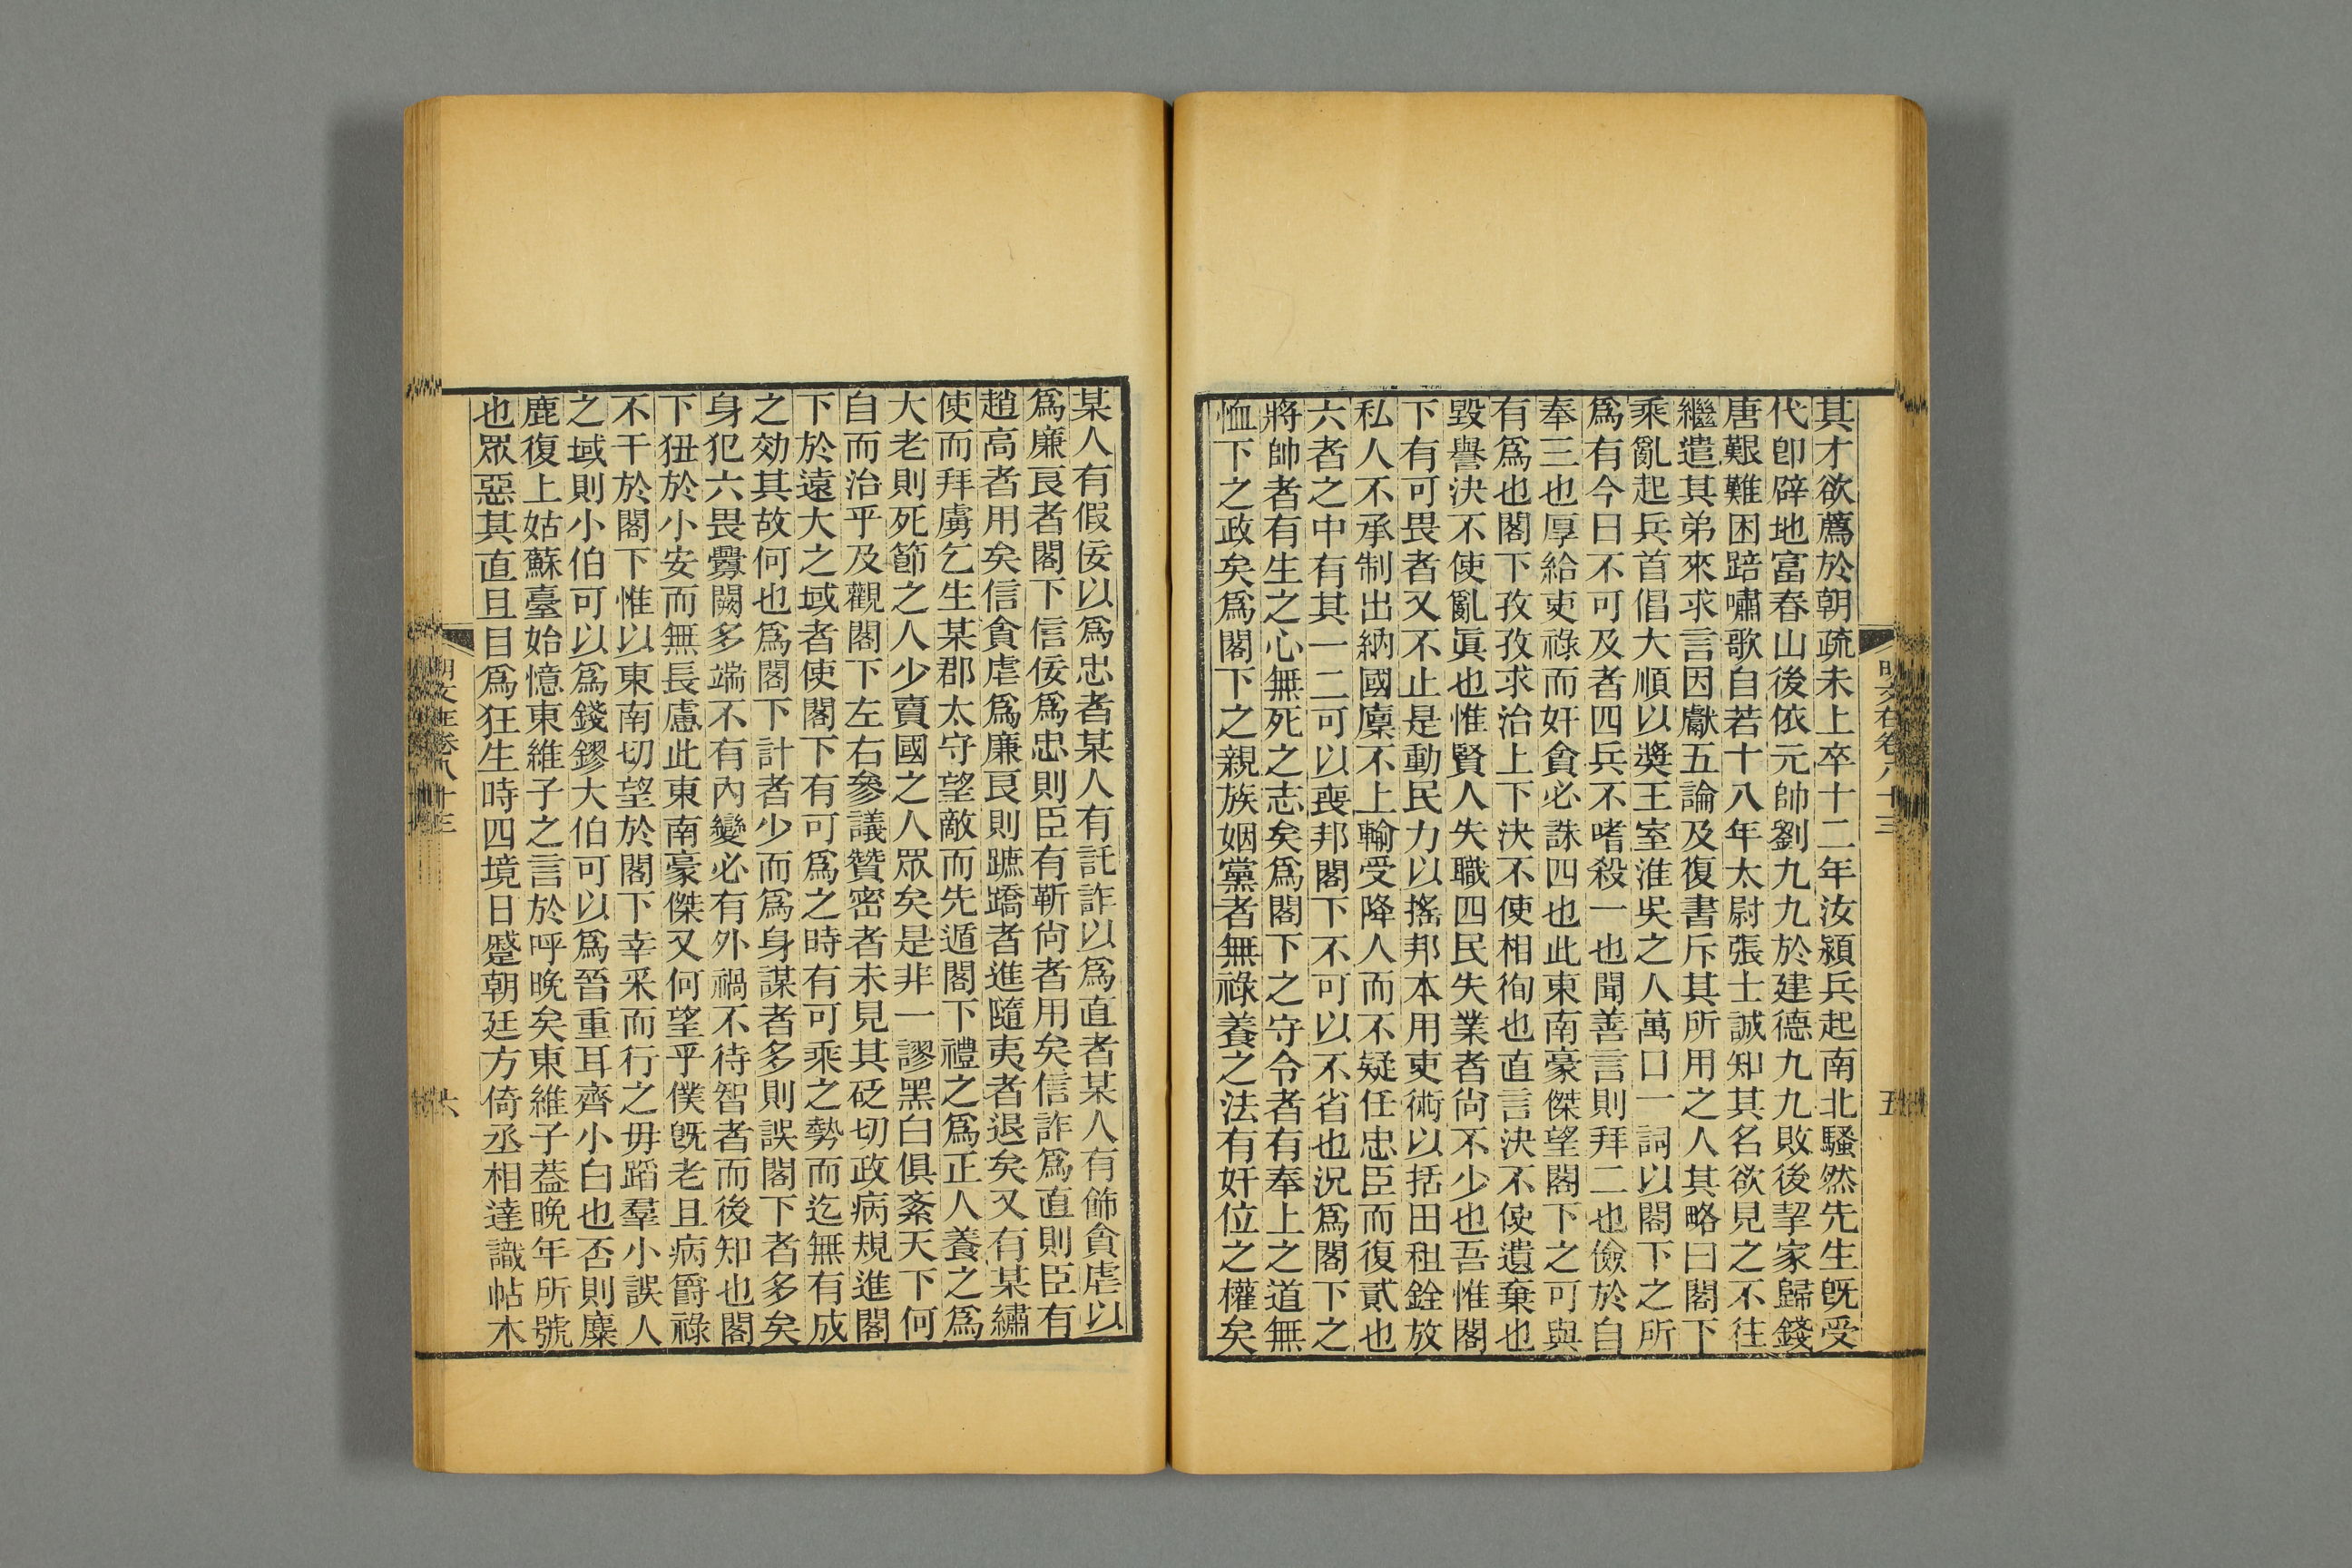 其才欲薦於朝疏未上卒十二年汝潁兵起南北騷然先生旣受
代卽辟地富春山後依元帥劉九九於建德九九敗後挈家歸錢
唐艱難困踣嘯歌自若十八年太尉張士誠知其名欲見之不往
繼遣其弟來求言因獻五論及復書斥其所用之人其略曰閣下
乘亂起兵首倡大順以奬王室淮吳之人萬口一詞以閣下之所
爲有今日不可及者四兵不嗜殺一也聞善言則拜二也儉於自
奉三也厚給吏祿而奸貪必誅四也此東南豪傑望閣下之可與
有爲也閣下孜孜求治上下決不使相徇也直言決不使遺棄也
毀譽決不使亂眞也惟賢人失職四民失業者尙不少也吾惟閣
下有可畏者又不止是動民力以搖邦本用吏術以括田租銓放
私人不承制出納國廩不上輸受降人而不疑任忠臣而復貳也
六者之中有其一二可以喪邦閣下不可以不省也況爲閣下之
將帥者有生之心無死之志矣爲閣下之守令者有奉上之道無
恤下之政矣爲閣下之親族姻黨者無祿養之法有奸位之權矣
明文在卷八十三
五
某人有假佞以爲忠者某人有託詐以爲直者某人有飾貪虐以
爲廉良者閣下信佞爲忠則臣有靳尙者用矣信詐爲直則臣有
趙高者用矣信貪虐爲廉良則蹠蹻者進隨夷者退矣又有某繡
使而拜虜乞生某郡太守望敵而先遁閣下禮之爲正人養之爲
大老則死節之人少賣國之人眾矣是非一謬黑白俱紊天下何
自而治乎及觀閣下左右參議贊密者未見其砭切政病規進閣
下於遠大之域者使閣下有可爲之時有可乘之勢而迄無有成
之効其故何也爲閣下計者少而爲身謀者多則誤閣下者多矣
身犯六畏釁闕多端不有內變必有外禍不待智者而後知也閣
下狃於小安而無長慮此東南豪傑又何望乎僕旣老且病爵祿
不干於閣下惟以東南切望於閣下幸采而行之毋蹈羣小誤人
之域則小伯可以爲錢鏐大伯可以爲晉重耳齊小白也否則麋
鹿復上姑蘇臺始憶東維子之言於呼晚矣東維子葢晚年所號
也眾惡其直且目爲狂生時四境日蹙朝廷方倚丞相達識帖木
明文在卷八十三
六